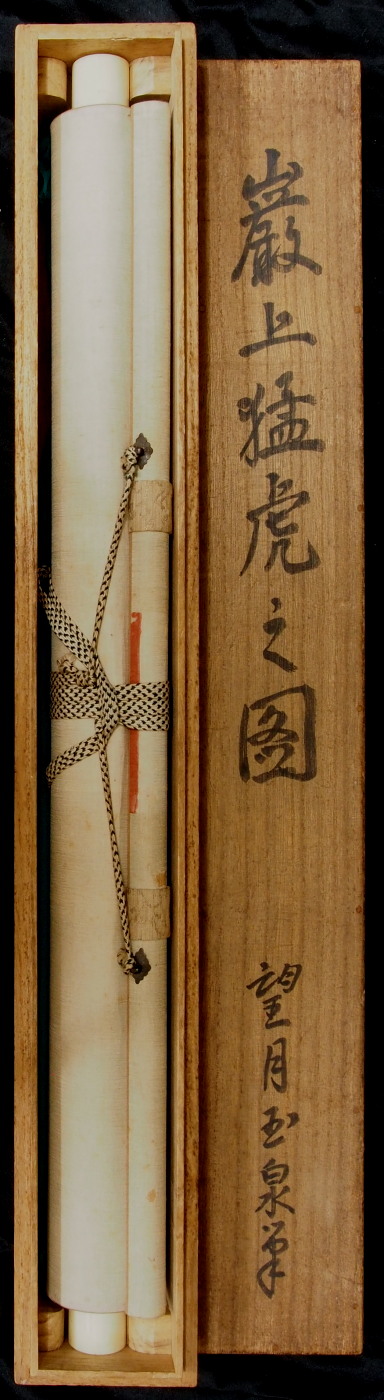 巖上猛虎之図
望月玉泉筆